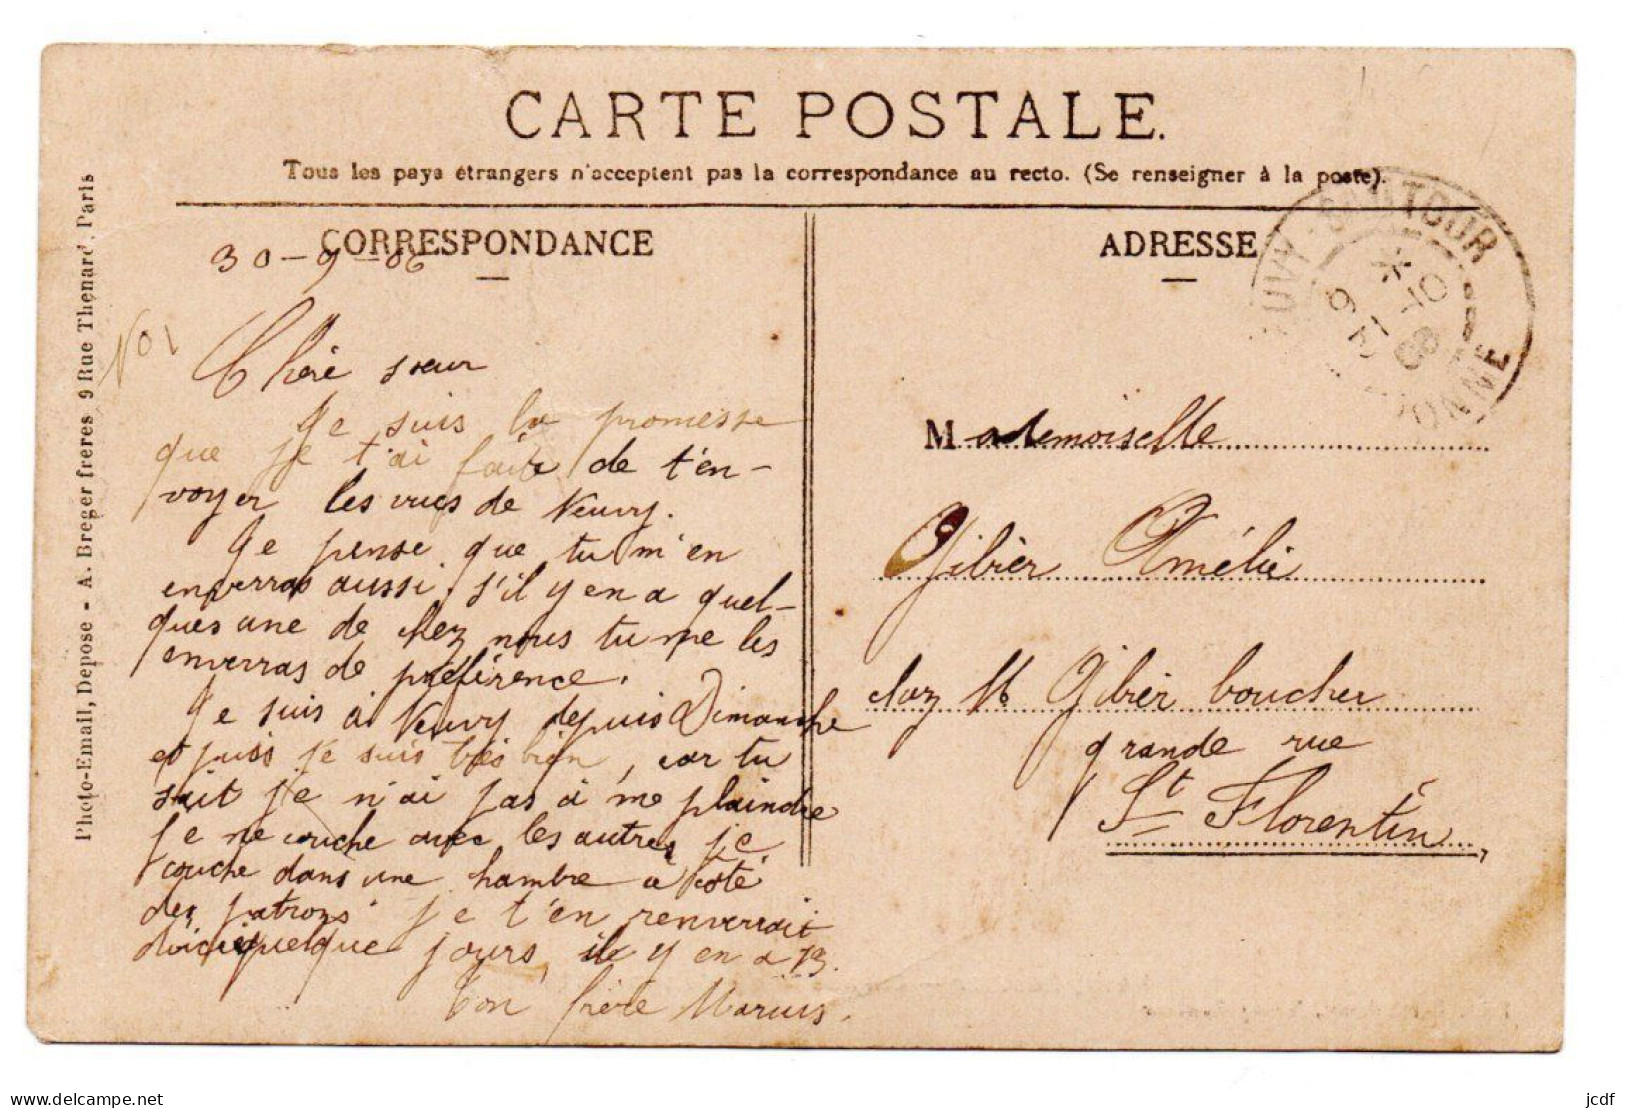 CARTE POSTALE.
Tous les pays étrangers n'acceptent pas la correspondance au recto. (Se renseigner à la poste).
CORRESPONDANCE
30-9-06
No 1
Chére sœur
Je suis la promesse
que je t'ai faite de t'en-
voyer les vues de Neuvy.
Je pense que tu m'en
enverras aussi, s'il y en a quel-
ques une de chez nous tu me les
enverras de préférence.
Je suis à Neuvy depuis Dimanche
et puis je suis très bien, car tu
sait je n'ai pas à me plaindre
je ne couche avec les autres je
couche dans une chambre a coté
des patrons. je t'en renverrait
d'ici quelque jours, il y en a 13.
Ton frère Marius.
ADRESSE
Mademoiselle
Gibier Amélie
chez M Gibier boucher
grande rue
St Florentin
UVY-SAUTOUR
YONNE
Photo-Email, Depose - A. Breger frères 9 Rue Thenard, Paris
www.delcampe.net
jcdf